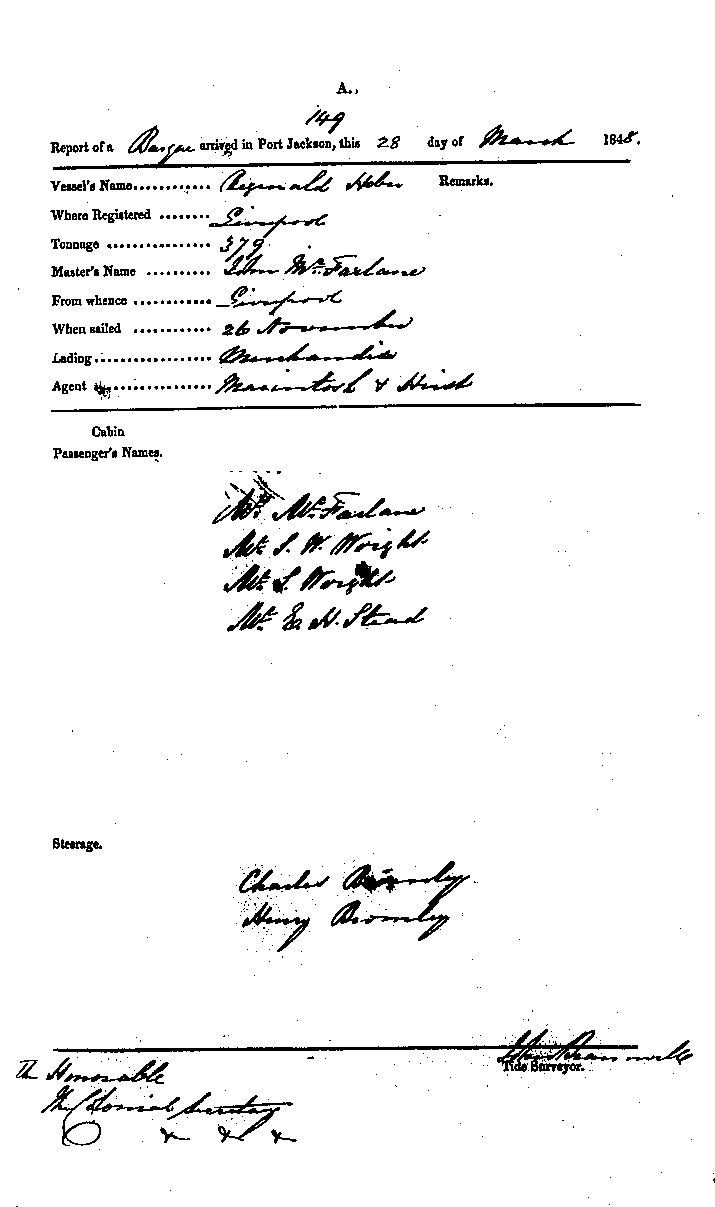 A.,
149
Report of a Barque arrived in Port Jackson, this 28 day of March 1848.
Vessel's Name............ Reginald Heber Remarks.
Where Registered ........ Liverpool
Tonnage ................ 379
Master's Name .......... John McFarlane
From whence ............ Liverpool
When sailed ............ 26 November
Lading.................. Merchandise
Agent ................ Macintosh & Hirst
Cabin
Passenger's Names.
McFarlane
Mr. S. W. Wright
Mr. S. Wright
Mr. E. H. Stead
Steerage.
Charles Bromley
Henry Bromley
John
Tide Surveyor.
The Honorable
The Colonial Secretary
&c &c &c